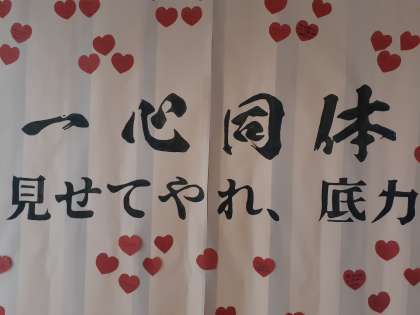 一心同体
見せてやれ、底力